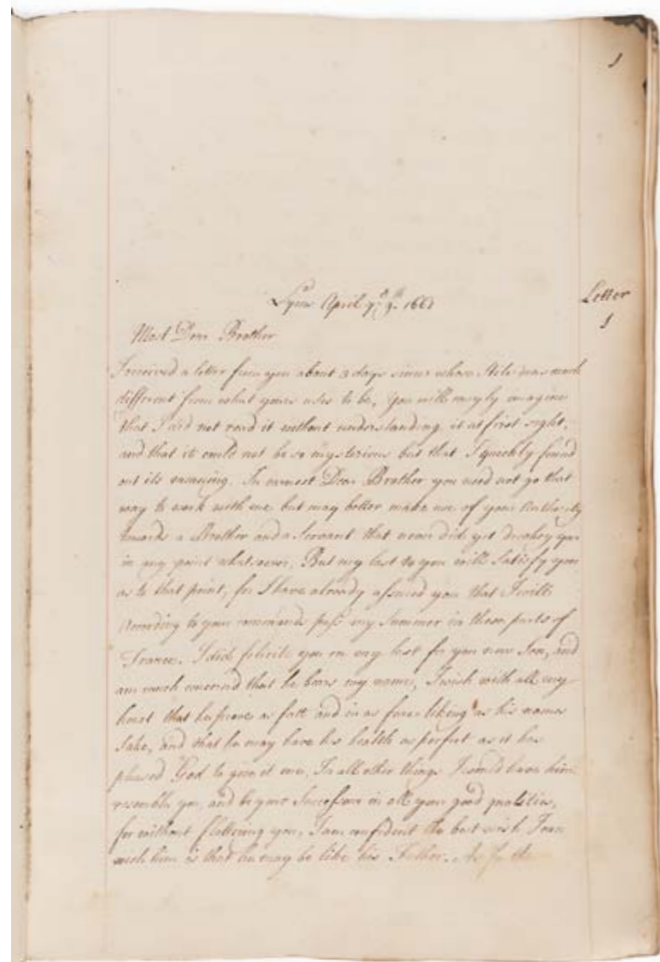 1
Lyon April 7th 9. 1661
Letter
1
Most Dear Brother
I received a letter from you about 3 days since whose Stile was much
different from what yours uses to be, you will easyly imagine
that I did not read it without understanding it at first sight,
and that it could not be so mysterious but that I quickly found
out its meaning. In earnest Dear Brother you need not go that
way to work with me but may better make use of your Authority
towards a Brother and a Servant that never did yet disobey you
in any point whatsoever. But my last to you will Satisfy you
as to that point, for I have already assured you that I will
According to your commands pass my Summer in these parts of
France. I did felicite you in my last for you new Son, and
am much concernd that he bears my name, I wish with all my
heart that he prove as fatt and in as fine liking as his names
Sake, and that he may have his health as perfect as it has
pleased God to give it me, In all other things I would have him
resemble you, and be your Successour in all your good qualities,
for without flattering you, I am confident the best wish I can
wish him is that he may be like his Father. As for the